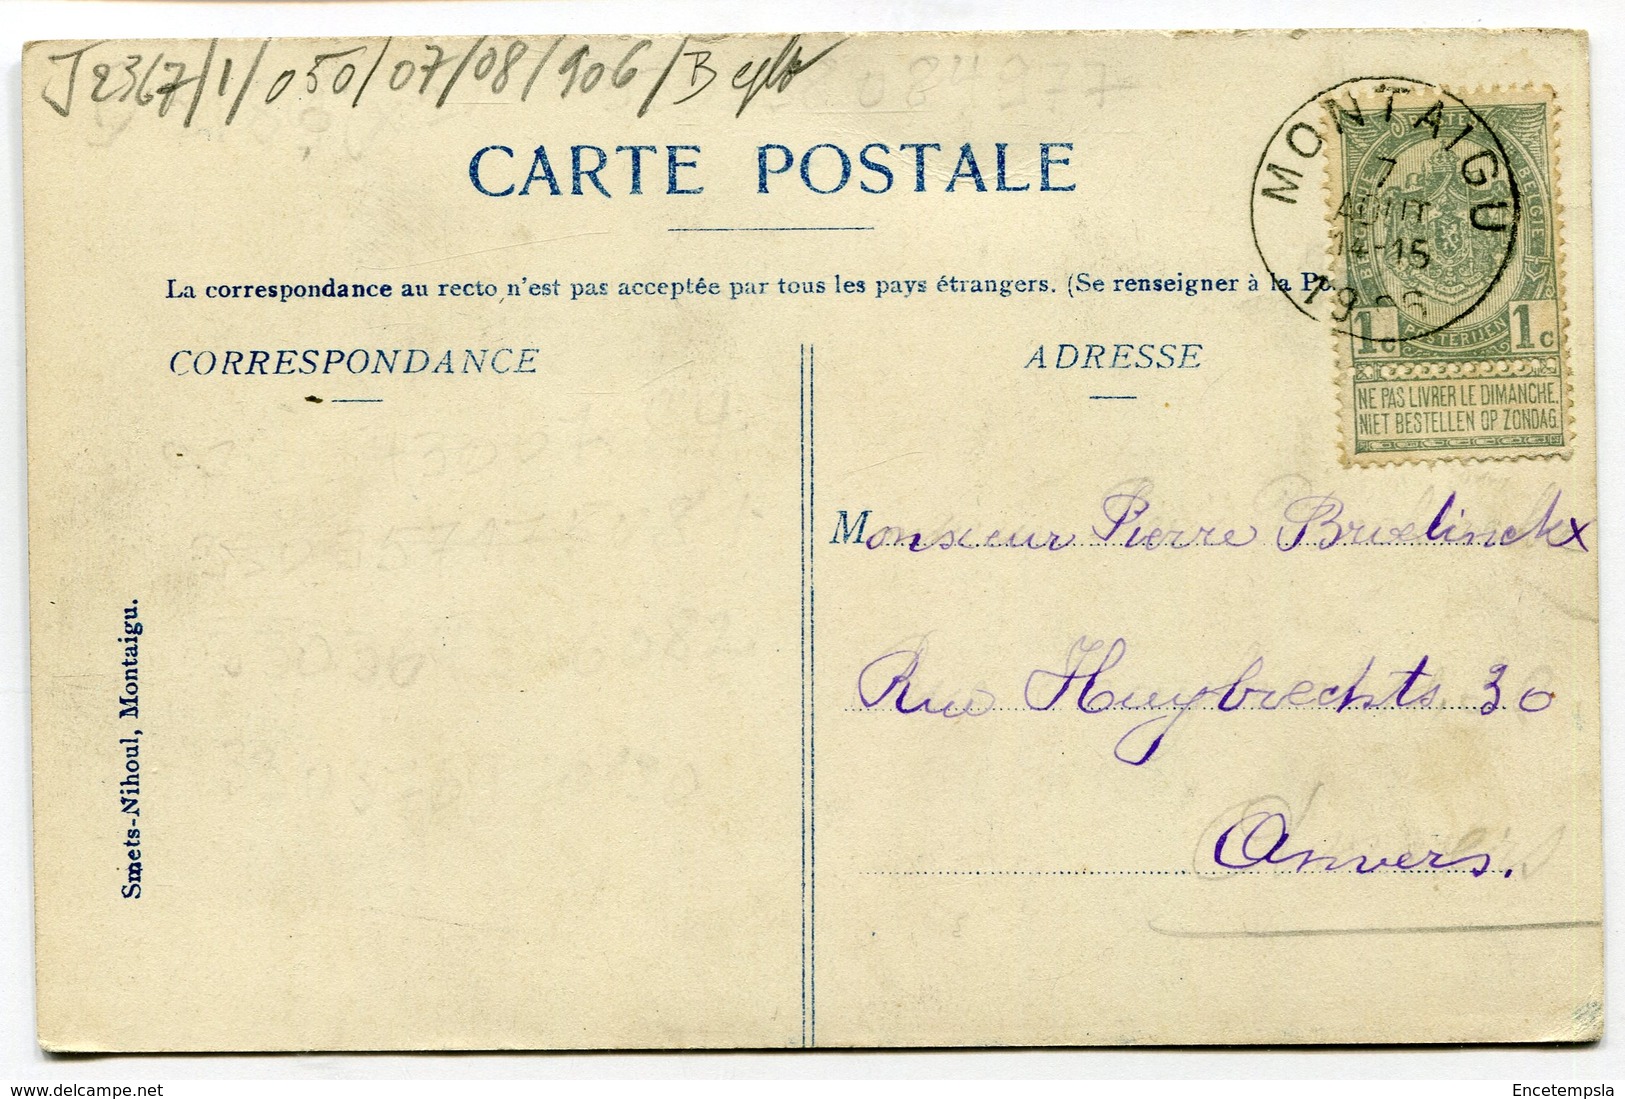 J2367/1/050/07/08/906/B
CARTE POSTALE
MONTAIGU
7
AOUT
14-15
1906
POSTES
BELGIQUE
BELGIE
POSTERIJEN
1c 1c
NE PAS LIVRER LE DIMANCHE.
NIET BESTELLEN OP ZONDAG.
La correspondance au recto n'est pas acceptée par tous les pays étrangers. (Se renseigner à la Po
CORRESPONDANCE
ADRESSE
Monsieur Pierre Bruelinckx
Rue Huybrechts 30
Anvers.
Smets-Nihoul, Montaigu.
delcampe.net
Encetempsla